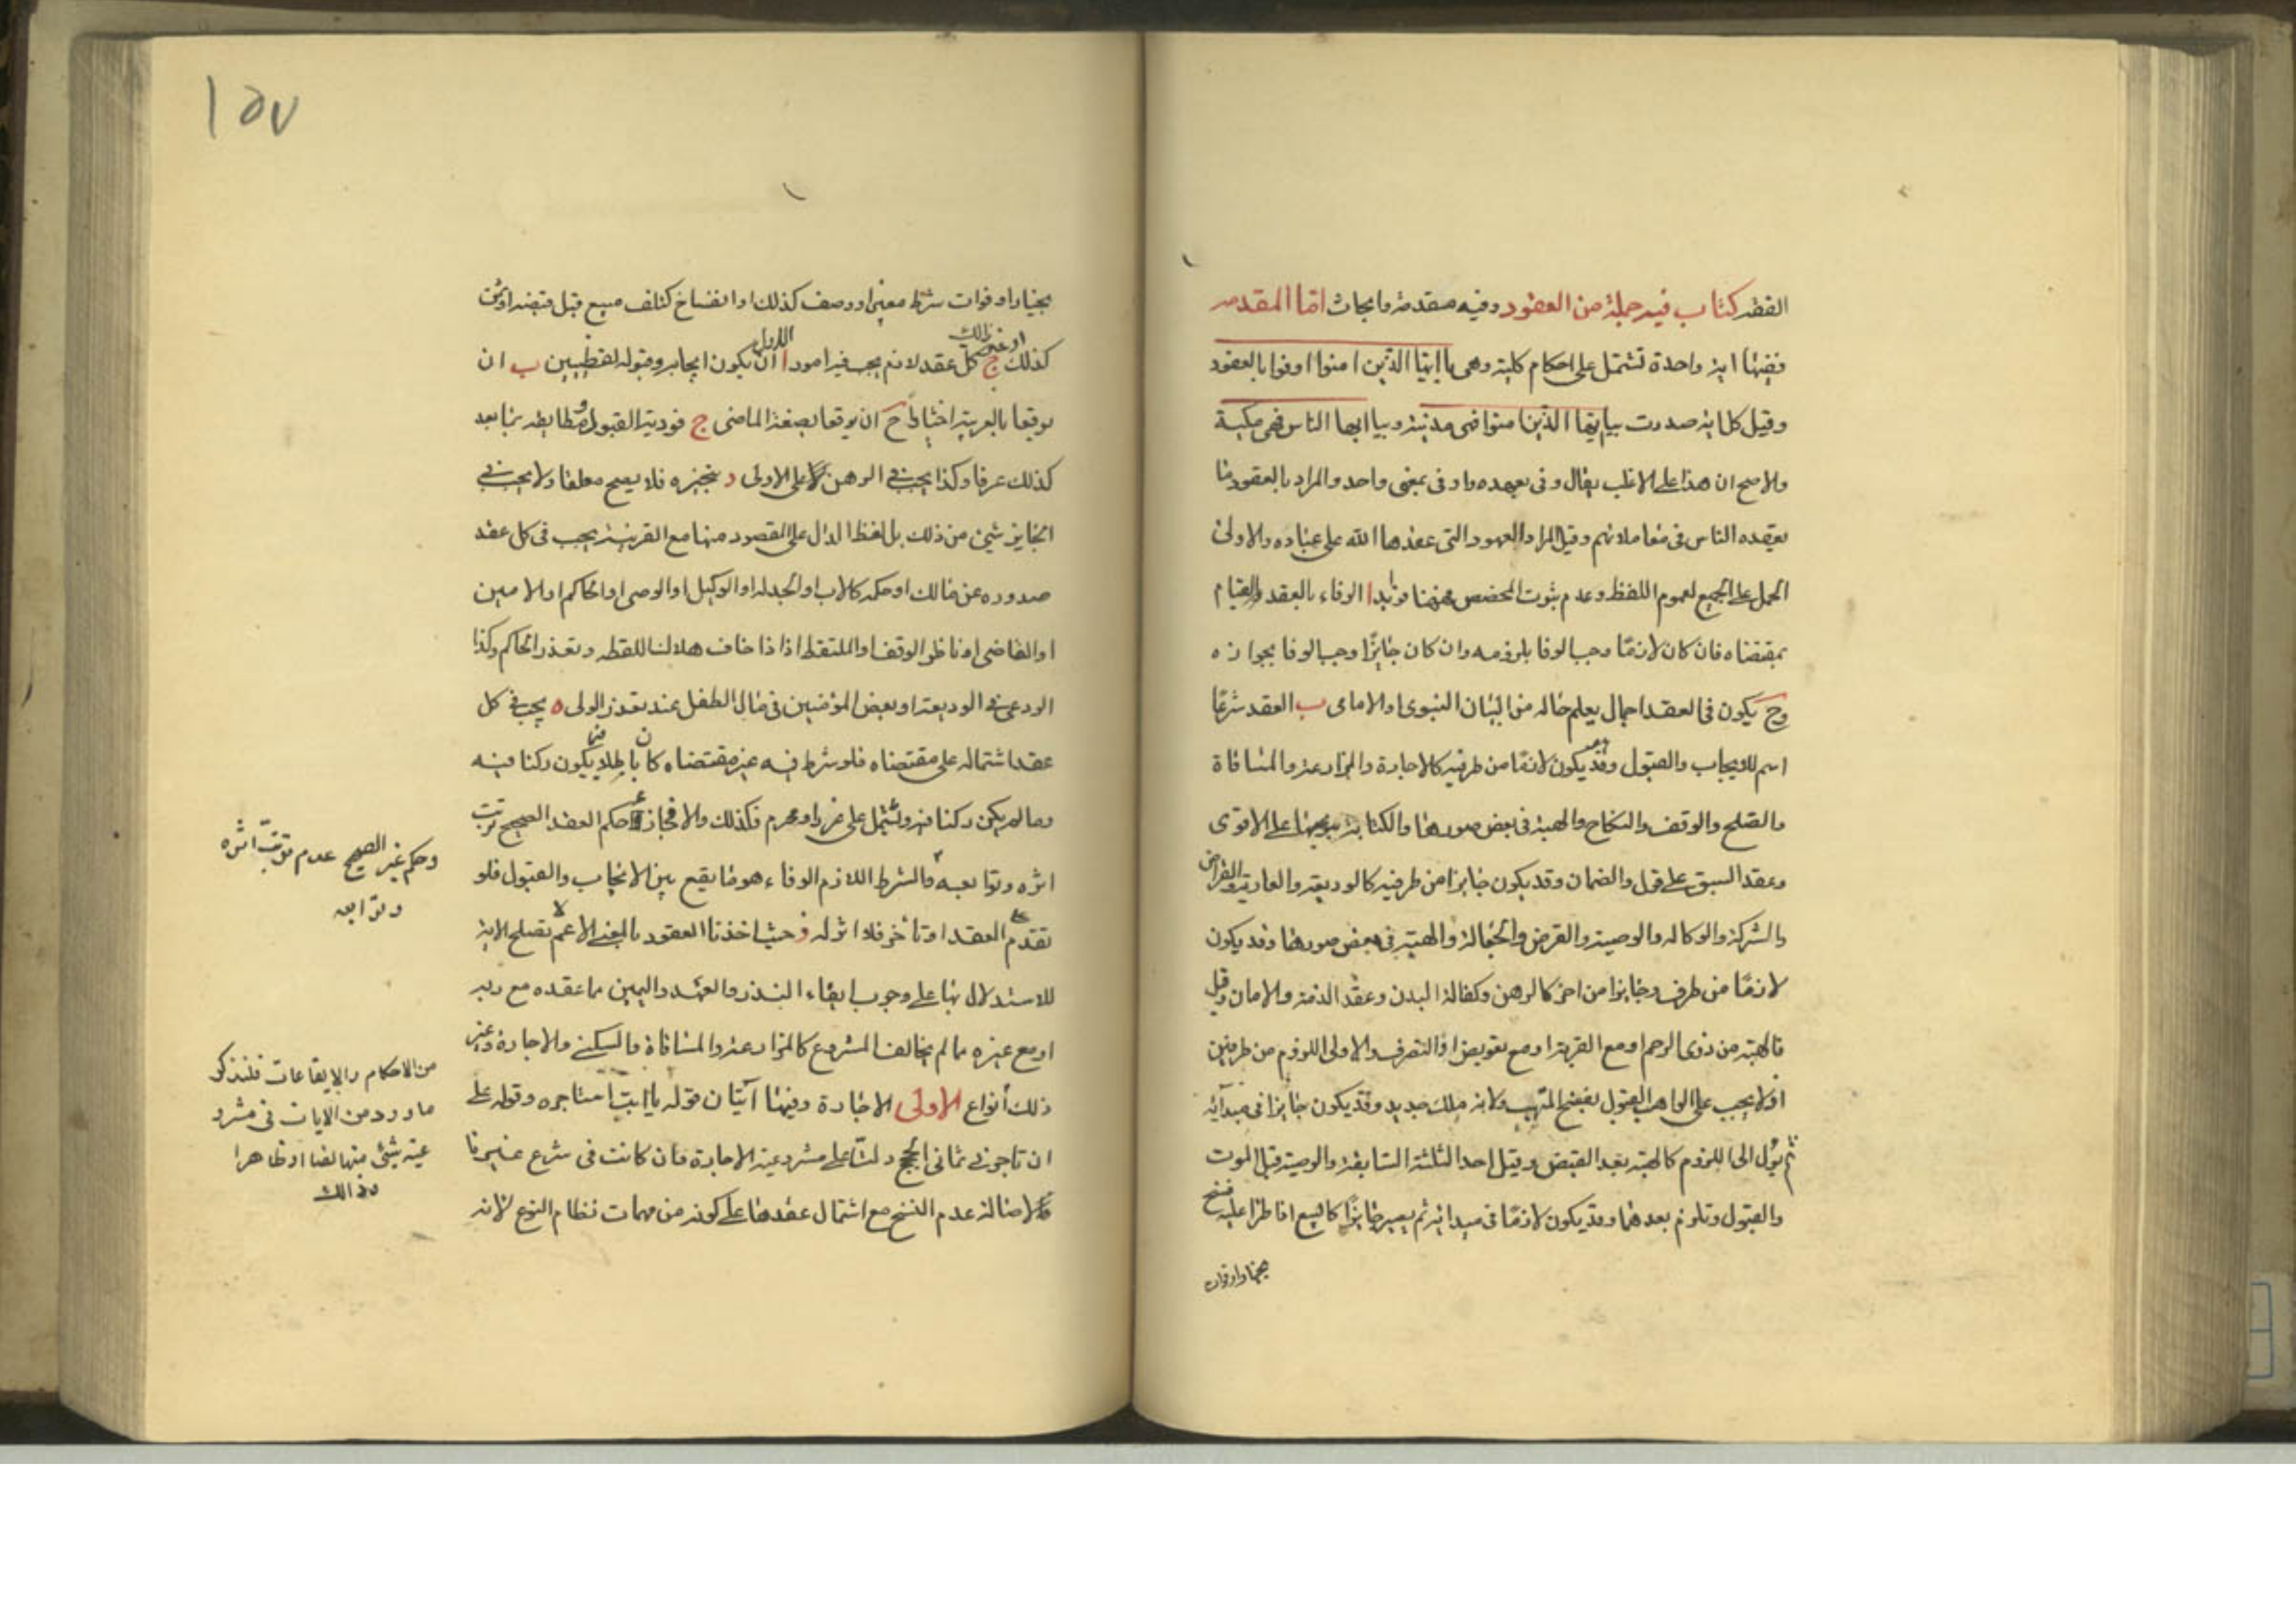 الفقه كتاب فيه جملة من العقود وفيه مقدمة وابحاث اما المقدمه
ففيها اية واحدة تشتمل على احكام كلية وهى يا ايها الذين امنوا اوفوا بالعقود
وقيل كل اية صدرت بيا ايها الذين امنوا فهى مدنية وبيا ايها الناس فهى مكية
والاصح ان هذا على الاغلب يقال وفى بعهده واوفى بمعنى واحد والمراد بالعقود ما
يعقده الناس فى معاملاتهم وقيل المراد العهود التى عقدها الله على عباده والاولى
الحمل على الجميع لعموم اللفظ وعدم ثبوت المخصص فهنا فوايد ا الوفاء بالعقد والقيام
بمقتضاه فان كان لازمًا وجب الوفا بلزومه وان كان جايزًا وجب الوفا بجوازه
وح يكون فى العقد اجمال يعلم حاله من البيان النبوى والامامى ب العقد شرعًا
اسم للايجاب والقبول وقد يكون لازمًا من طرفيه كالاجارة والمزارعة والمساقاة
والصلح والوقف والنكاح والهبة فى بعض صورها والكتابة بنوعيها على الاقوى
وعقد السبق على قول والضمان وقد يكون جايزا من طرفيه كالوديعة والعارية والقراض
والشركة والوكاله والوصية والقرض والجعالة والهبة فى بعض صورها وقد يكون
لازمًا من طرف وجايزا من اخر كالرهن وكفالة البدن وعقد الذمة والامان وقيل
فالهبة من ذوى الرحم او مع القربة او مع تعويض او التصرف والاولى اللزوم من طرفين
اذ لا يجب على الواهب القبول بفسخ المتهب ولانه ملك جديد وقد يكون جايزا فى مبدائه
ثم يؤل الى اللزوم كالهبة بعد القبض وقيل احد الثلثة السابقة والوصية قبل الموت
والقبول وتلزم بعدهما وقد يكون لازمًا فى مبدائه ثم يصير جايزًا كالبيع اذا طرا عليه فسخ
بخيار او فوات
١٥٧
بخيار او فوات شرط معين او وصف كذلك او انفساخ كتلف مبيع قبل قبضه او ثمن
كذلك او غير ذالك ج كل عقد لازم يجب فيه امور ا الاول ان يكون ايجابه وقبوله لفظيين ب ان
يوقعا بالعربية اختيارًا ح ان يوقعا بصيغة الماضى ج فورية القبول ومطابقته بما يعد
كذلك عرفا وكذا يجب فى الرهن كلا على الاولى د تنجيزه فلا يصح معلقا ولا يجب فى
الجايز شيئ من ذلك بل لفظ الدال على المقصود منها مع القرينة يجب فى كل عقد
صدوره عن مالك او حكمه كالاب والجد له او الوكيل او الوصى او الحاكم او الامين
او القاضى او ناظر الوقف او الملتقط اذا خاف هلاك اللقطه وتعذر الحاكم وكذا
الودعى فى الوديعة او بعض المؤمنين فى مال الطفل عند تعذر الولى ه يجب فى كل
عقد اشتماله على مقتضاه فلو شرط فيه غير مقتضاه كان باطلا فيما يكون ركنا فيه
وما لم يكن ركنا فيه ويشتمل على غرر او محرم فكذلك والا فجاز و حكم العقد الصحيح ترتب
اثره وتوابعه والشرط اللازم الوفاء هو ما يقع بين الايجاب والقبول فلو
تقدم على العقد او تأخر فلا اثر له ز حيث اخذنا العقود بالمعنى الاعم لا تصلح الاية
للاستدلال بها على وجوب ايفاء النذر والعهد واليمين مما عقده مع ربه
او مع غيره مما لم يخالف المشروع كالمزارعة والمساقاة والسكنى والاجارة وغير
ذلك أنواع الاولى الاجارة وفيها آيتان قوله يا ابت استاجره وقوله على
ان تاجرنى ثمانى حجج دلتا على مشروعية الاجارة وان كانت فى شرع غيرنا
ولاصالة عدم النسخ مع اشتمال عقدها على كونه من مهمات نظام النوع لانه
وحكم غير الصحيح عدم ترتب اثره
وتوابعه
من الاحكام والايقاعات فلنذكر
ما ورد من الايات فى مشرو
عية شيئ منها نصا او ظاهرا
وذالك